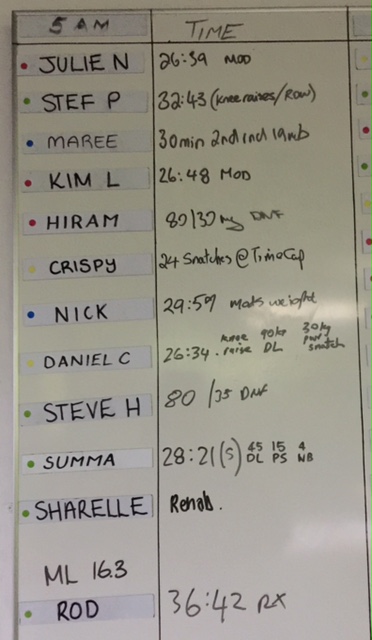 5 AM TIME
JULIE N 26:39 MOD
STEF P 32:43 (knee raises/Row)
MAREE 30min 2nd incl
KIM L 26:48 MOD
HIRAM 80/30 DNF
CRISPY 24 Snatches @ TimeCap
NICK 29:59 mods weight
DANIEL C 26:34. knee raise 90kg DL 30kg pwr snatch
STEVE H 80/35 DNF
SUMMA 28:21 (S) 45 DL 15 PS 4 WB
SHARELLE Rehab.
ML 16.3
ROD 36:42 RX